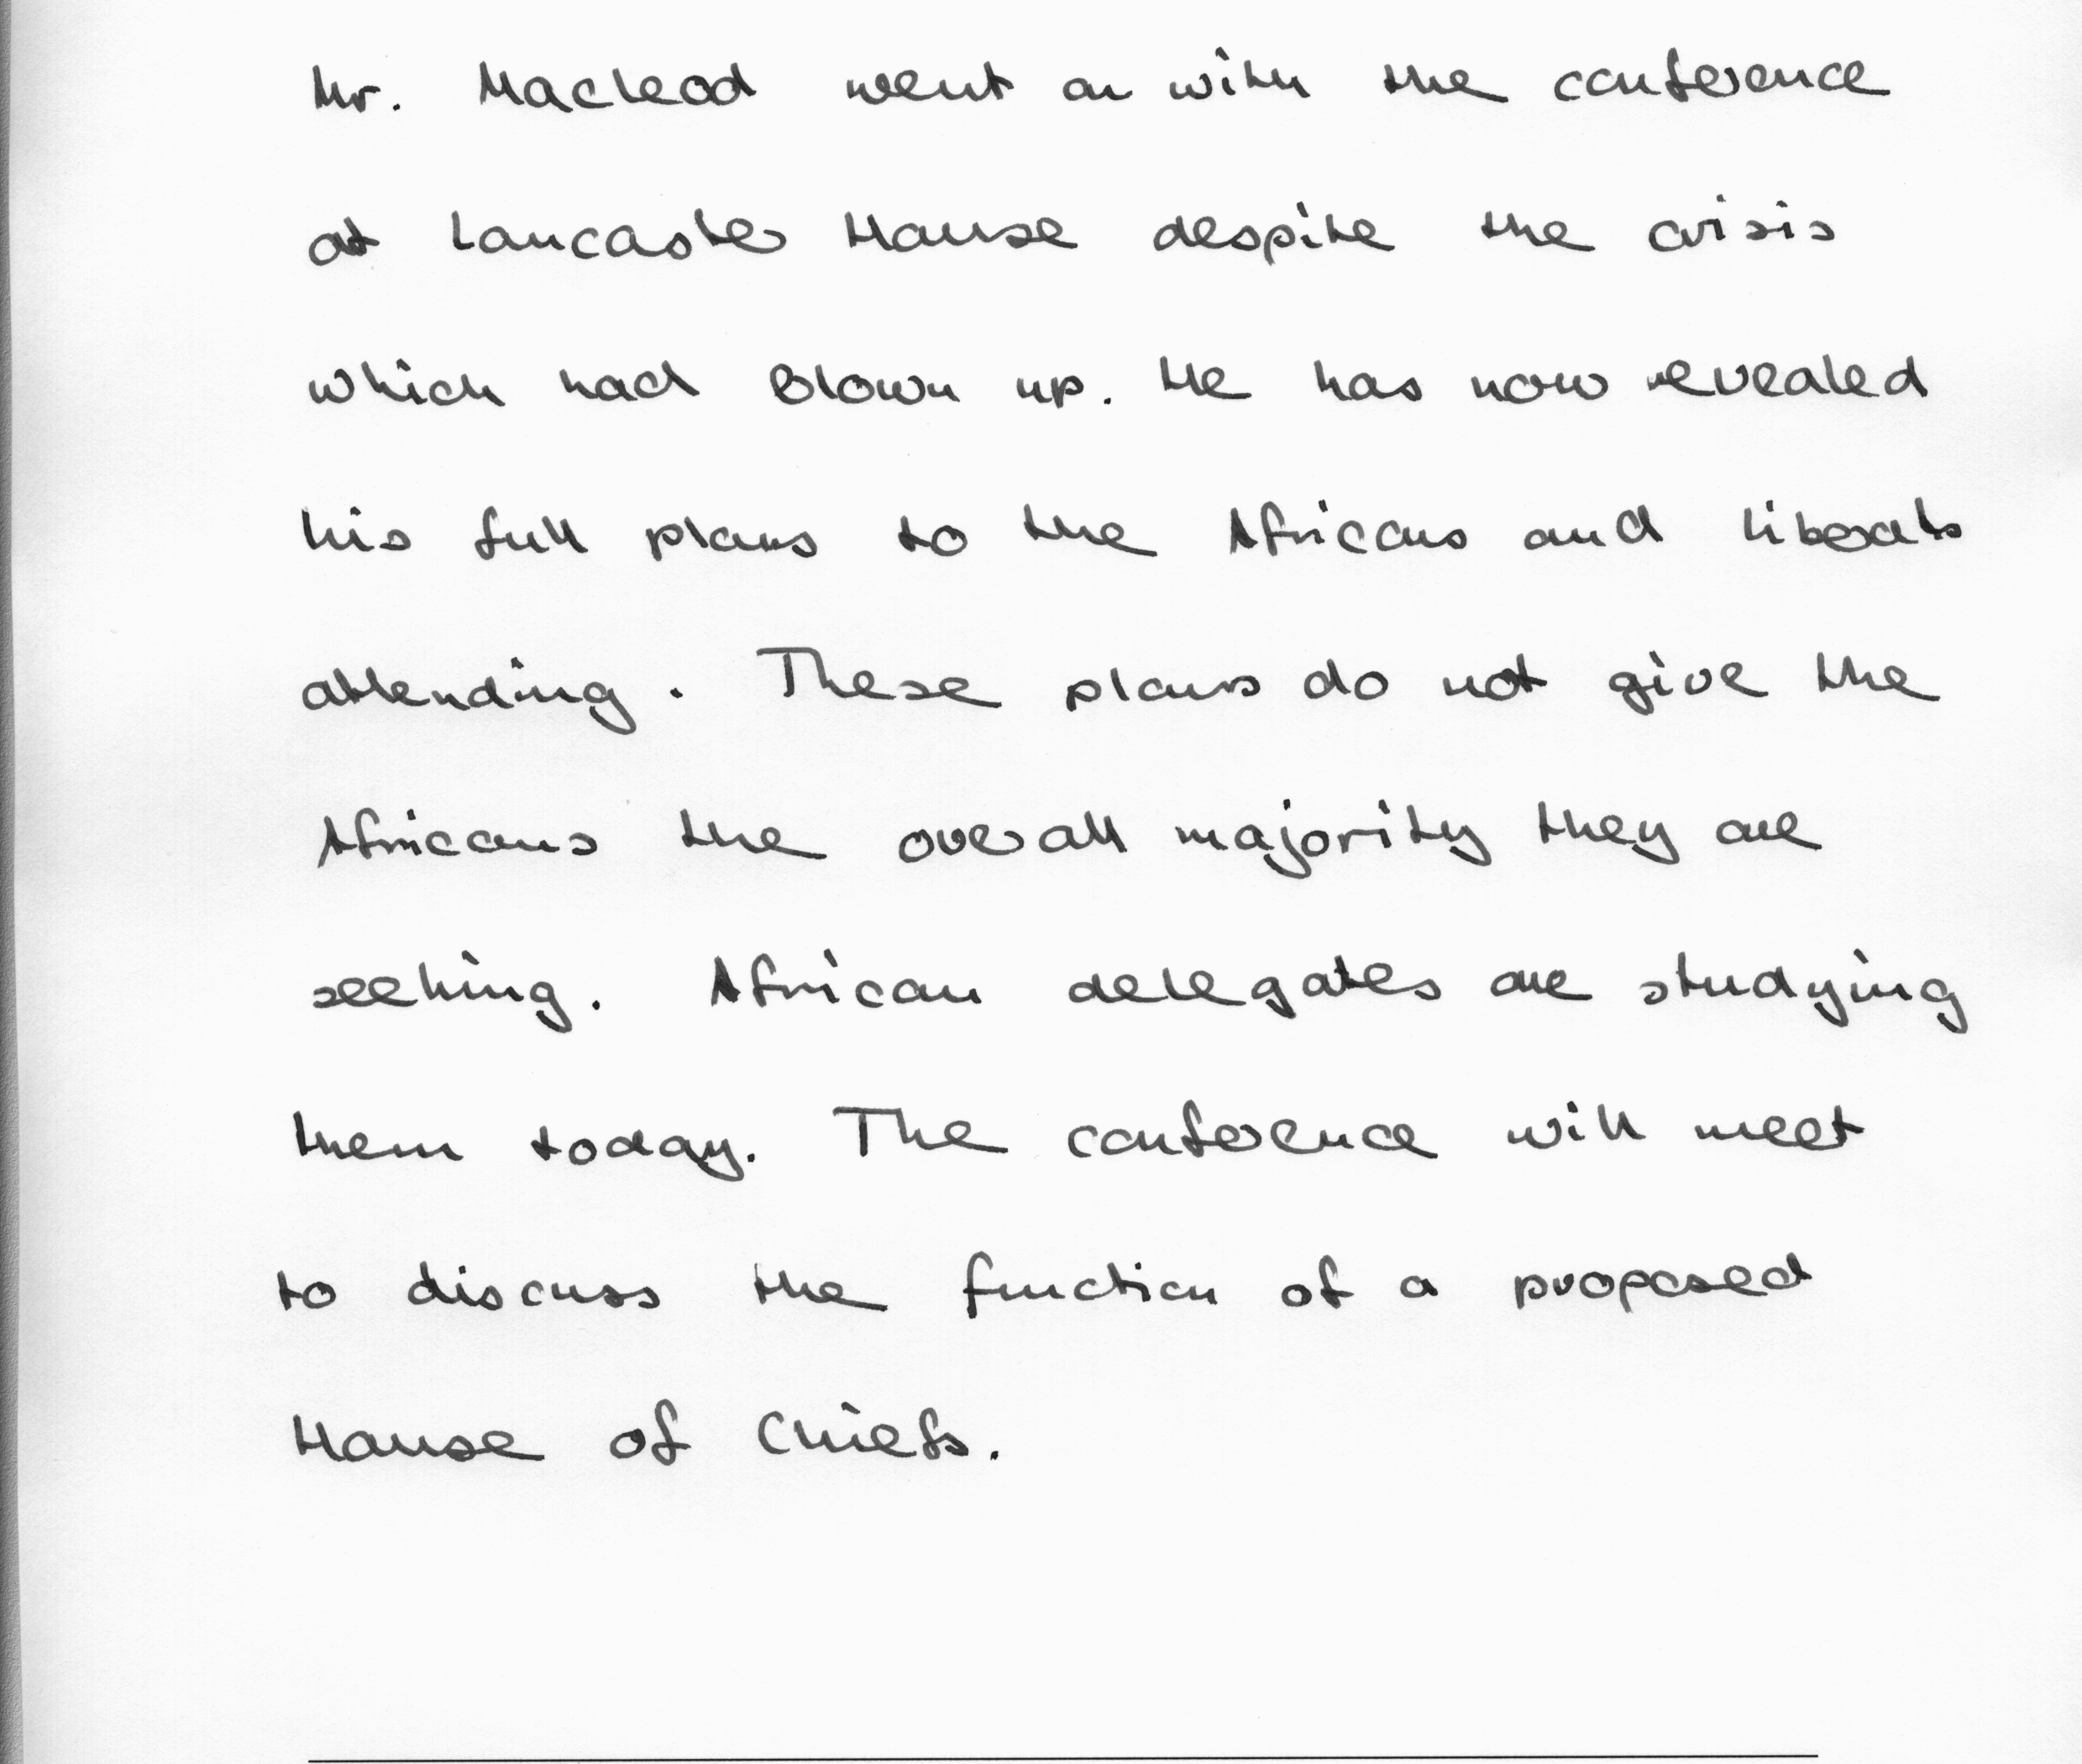 Mr. Macleod went on with the conference
at Lancaster House despite the crisis
which had blown up. He has now revealed
his full plans to the Africans and liberals
attending. These plans do not give the
Africans the overall majority they are
seeking. African delegates are studying
them today. The conference will meet
to discuss the function of a proposed
House of Chiefs.